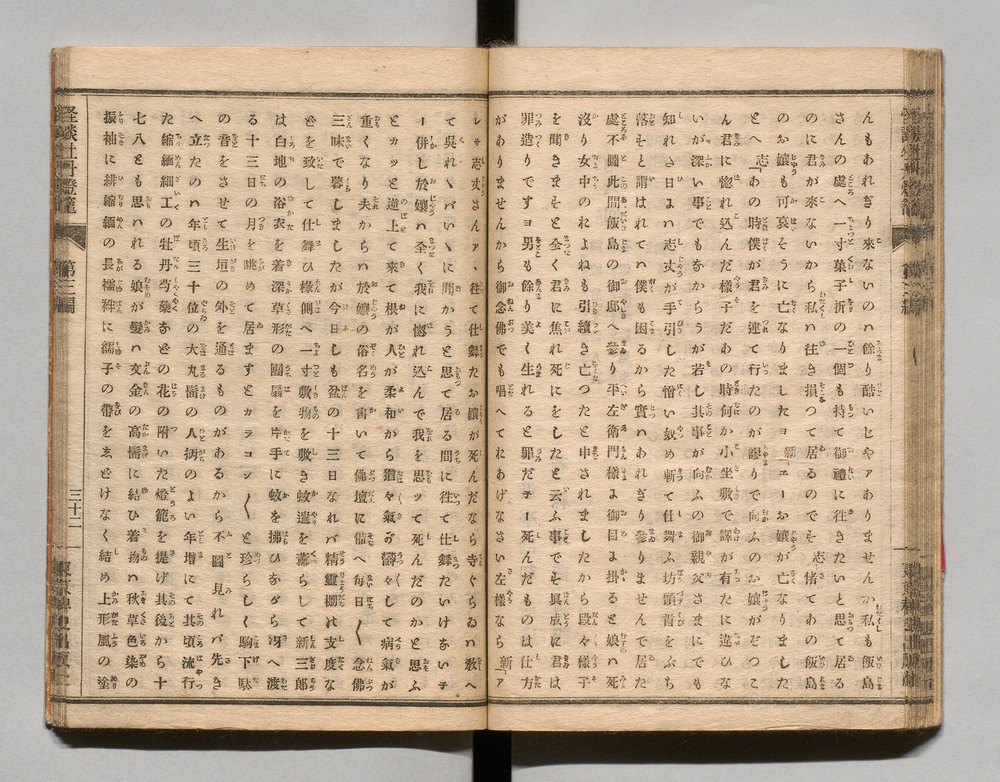 んもあれぎり來ないのハ餘り酷いじやァありませんか私も飯島
さんの處へ一寸菓子折の一個も持て御禮に往きたいと思て居る
のに君が來ないから私ハ往き損つて居るのでそ 志「偖てあの飯島
のお孃も可哀そうに亡なりましたヨ 新「エーお孃が亡なりました
とへ 志「あの時僕が君を連て行たのが謬りで向ふのお孃がぞつこ
ん君に惚れ込んだ樣子だあの時何か小坐敷で譯が有たに違ひな
いが深い事でもあからうが若し其事が向ふの御親父さまにでも
知れさ日よハ志丈が手引した憎い奴め斬て仕舞ふ坊頭首をぶち
落せと謂はれてハ僕も困るから實ハあれぎり參りませんで居た
處不圖此間飯島の御邸へ參り平左衞門樣よ御目よ掛ると娘ハ死
沒り女中のおよねも引續き亡つたと申されましたから段々樣子
を聞きまそと全く君に焦れ死にをしたと云ふ事でそ眞成に君ハ
罪造りですヨ男も餘り美く生れると罪だチー死んだものハ仕方
がありませんから御念佛でも唱へてれあげなさい左樣なら 新「ァ
レサ志丈さんァ、往て仕舞たお孃が死んだなら寺ぐらゐハ敎へ
て呉れゝバいゝに聞かうと思て居る間に往て仕舞たいけるいチ
ー併し於孃ハ全く我に惚れ込んで我を思ッて死んだのかと思ふ
とカッと逆上て來て根が人が柔和から猶々氣が欝々して病氣が
重くなり夫からハ於孃の俗名を書いて佛壇に備へ毎日〱念佛
三味で暮しましたが今日しも盆の十三日なれバ精靈棚れ支度な
どを致して仕舞ひ椽側へ一寸敷物を敷き蚊遣を薰らして新三郞
は白地の浴衣を着深草形の團扇を片手に蚊を拂ひながら冴へ渡
る十三日の月を眺めて居ますとカラコン〱と珍らしく駒下駄
の音をさせて生垣の外を通るものがあるから不圖見れバ先き
へ立たのハ年頃三十位の大丸髷の人柄のよい年增にて其頃流行
た縮緬細工の牡丹芍藥などの花の附いた燈籠を提げ其後から十
七八とも思ハれる娘が髮ハ文金の高髷に結ひ着物ハ秋草色染の
振袖に緋縮緬の長襦袢に繻子の帶を玄どけなく結め上形風の塗
怪談牡丹燈籠
第三編
三十二